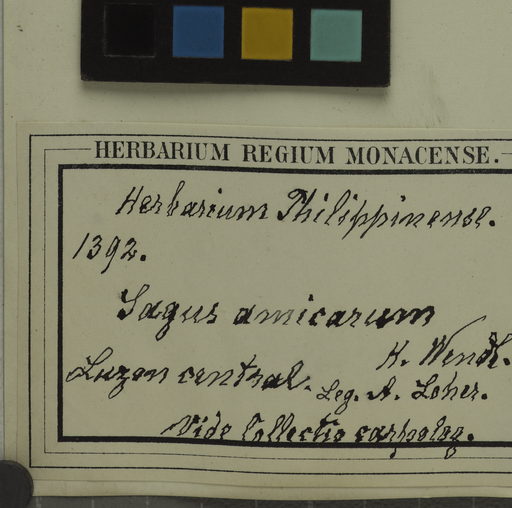 HERBARIUM REGIUM MONACENSE.
Herbarium Philippinense.
1392.
Sagus amicarum
H. Wendl.
Luzon central. Leg. A. Loher.
Vide Collectio carpolog.